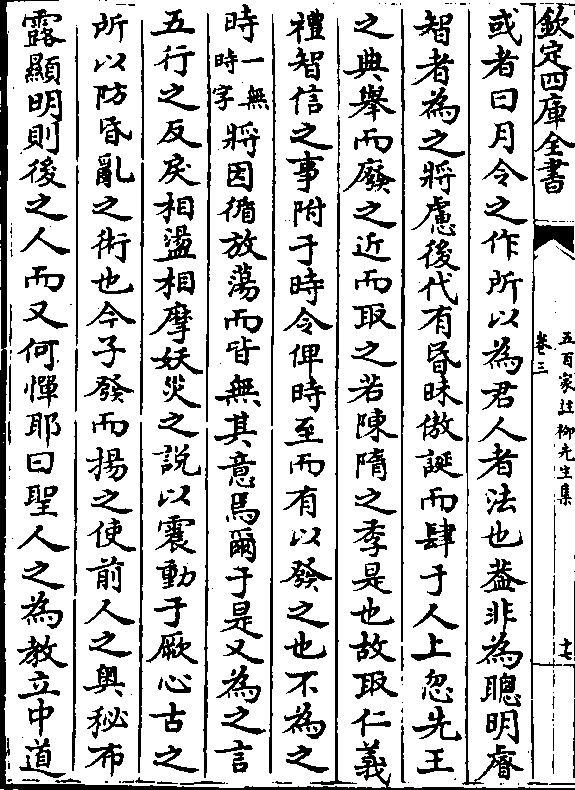 欽定四庫全書
五百家註柳先生集
卷三
十七
或者曰月令之作所以為君人者法也葢非為聰明睿
智者為之將慮後代有昏昧傲誕而肆于人上忽先王
之典舉而廢之近而取之若陳隋之季是也故取仁義
禮智信之事附于時令俾時至而有以發之也不為之
時一無時字將因循放蕩而皆無其意焉爾于是又為之言
五行之反戾相盪相摩妖災之說以震動于厥心古之
所以防昏亂之術也今子發而揚之使前人之奥秘布
露顯明則後之人而又何憚耶曰聖人之為教立中道